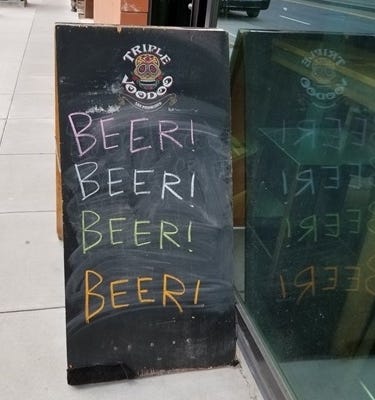 TRIPLE
VOODOO
SAN FRANCISCO
BEER!
BEER!
BEER!
BEER!